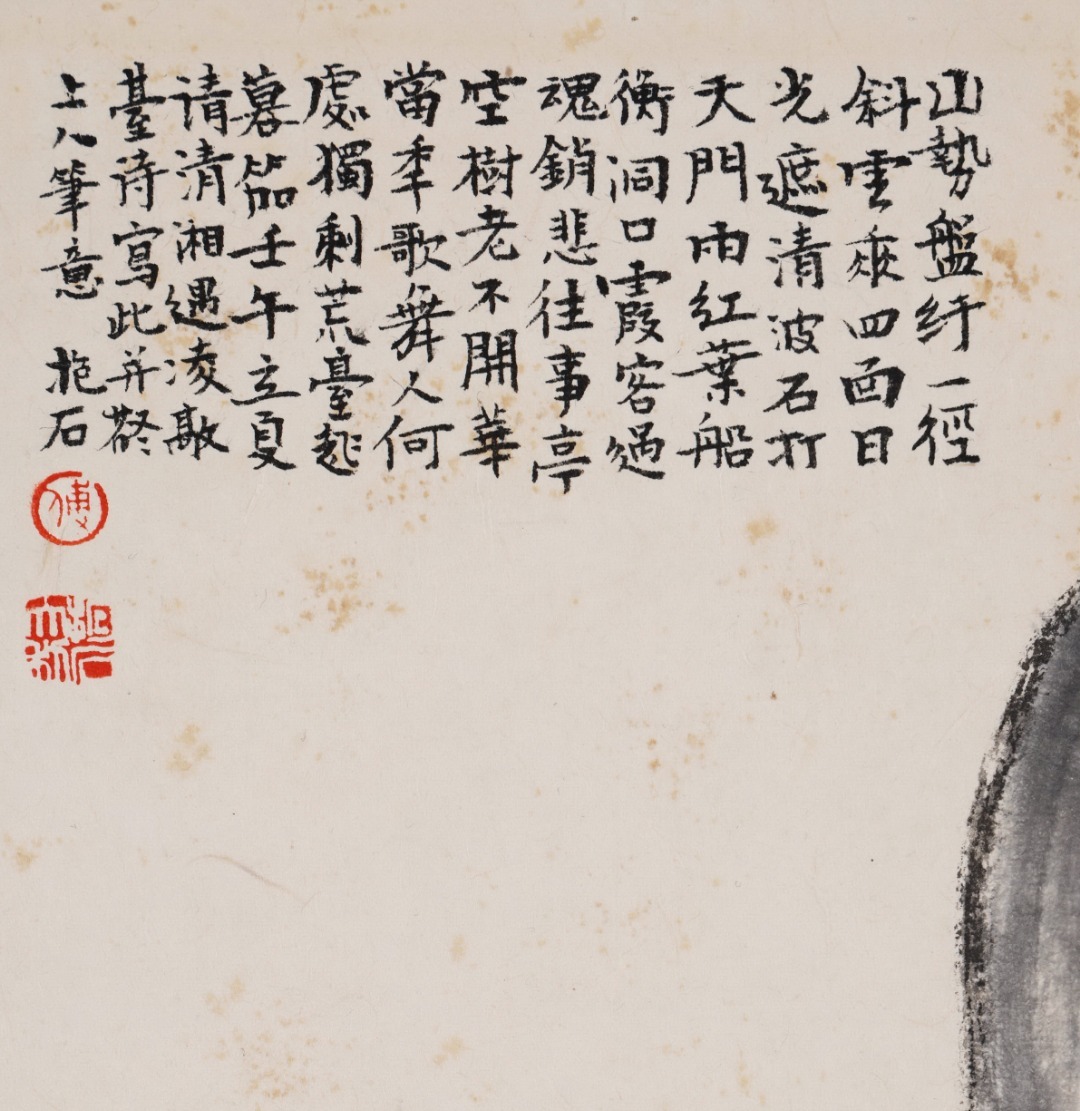 山勢盤紆一徑
斜雲垂四面日
光遮清波石打
天門雨紅葉船
衝洞口霞客過
魂銷悲往事亭
空樹老不開華
當秊歌舞人何
處獨剩荒臺起
暮笳壬午立夏
清湘過凌歊
臺诗寫此并擬
上人筆意 抱石
傅